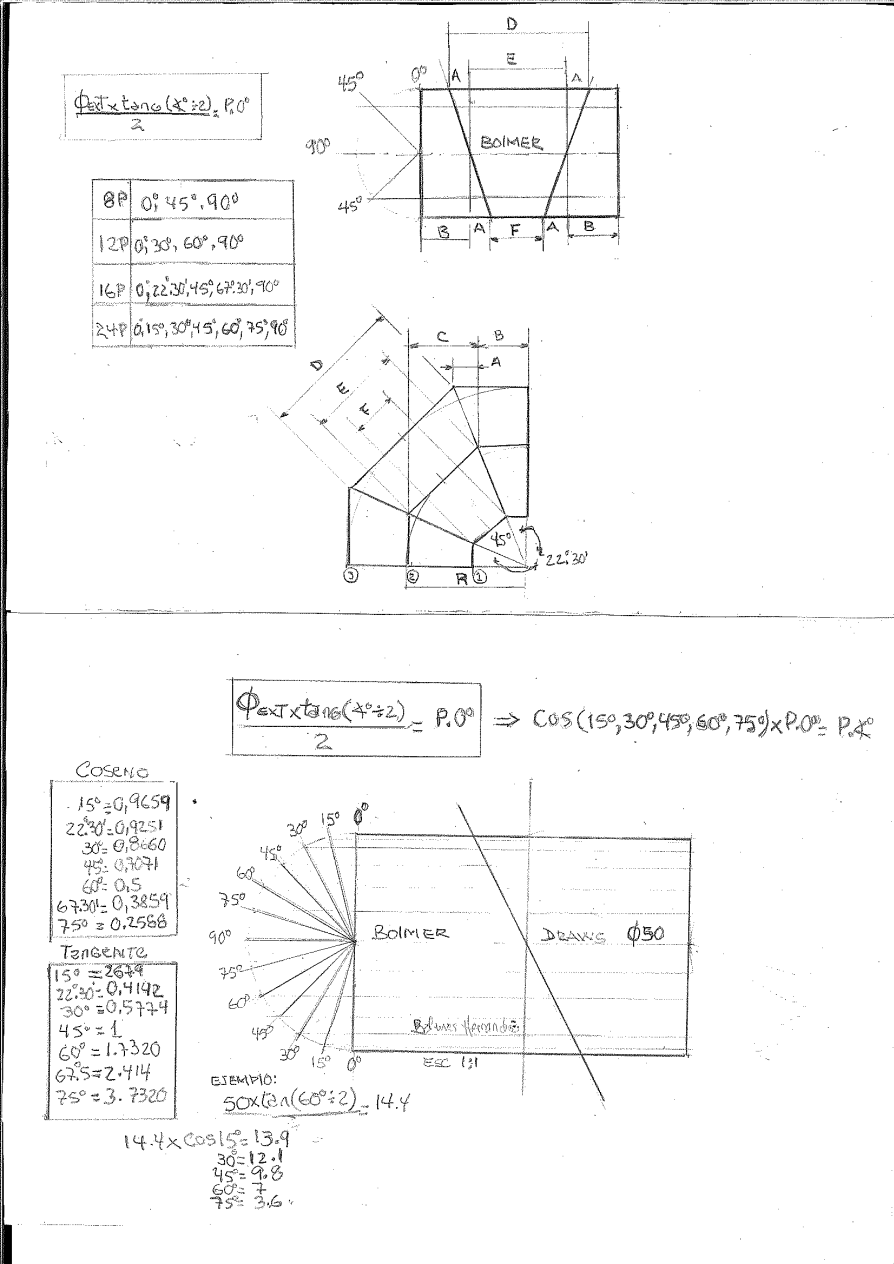 D
E
0° A A
45°
90°
45°
BOIMER
B A F A B
ΦEXT x tang(∡°÷2) = P.0°
2
8P 0°, 45°, 90°
12P 0°, 30°, 60°, 90°
16P 0°, 22°30', 45°, 67°30', 90°
24P 0°, 15°, 30°, 45°, 60°, 75°, 90°
C B
A
D
E
F
45°
22°30'
③ ② R ①
ΦEXT x tang(∡°÷2) = P.0° ⇒ COS(15°, 30°, 45°, 60°, 75°) x P.0° = P.∡°
2
COSENO
15° = 0,9659
22°30' = 0,9251
30° = 0,8660
45° = 0,7071
60° = 0,5
67.30' = 0,3859
75° = 0.2588
TanGENTE
15° = 2679
22°30' = 0,4142
30° = 0,5774
45° = 1
60° = 1.7320
67.5 = 2.414
75° = 3.7320
0°
15°
30°
45°
60°
75°
90°
75°
60°
45°
30°
15°
0°
BOIMER DRAWS Φ50
ESC 1:1
EJEMPlO:
50xtan(60°÷2) = 14.4
14.4 x Cos15° = 13.9
30° = 12.1
45° = 9.8
60° = 7
75° = 3.6